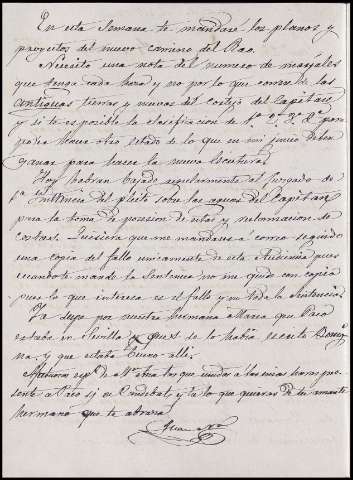 En esta semana te mandaré los planos y
proyectos del nuevo camino del Pao.
Necesito una nota del numero de
que tenga cada hora y no por lo que corre de las
antiguas tierras y nuevas del cortijo del Capitan
y si te es posible la clasificacion de 1ª 2ª 3ª pª
hacer otro estado de lo que en mi juicio deben
ganar para hacer la nueva Escritura.
Hoy habran bajado al Juzgado de
1ª Instancia del pleito sobre las aguas del Capitan
para la toma de posesion de estas y reclamacion de
costas. Quisiera que me mandases á correo seguido
una copia del fallo unicamente de esta Audiencia pues
cuando te mandé la Sentencia no me quedé con copia
pues lo que interesa es el fallo y no toda la Sentencia.
Ya supe por nuestra hermana Maria que Paco
estaba en Sevilla pues se lo habia escrito
y que estaba bueno alli.
de Mª que unidos á las mias haras pre
sente á Paco si y tu lo que quieras de tu amante
hermano que te abraza